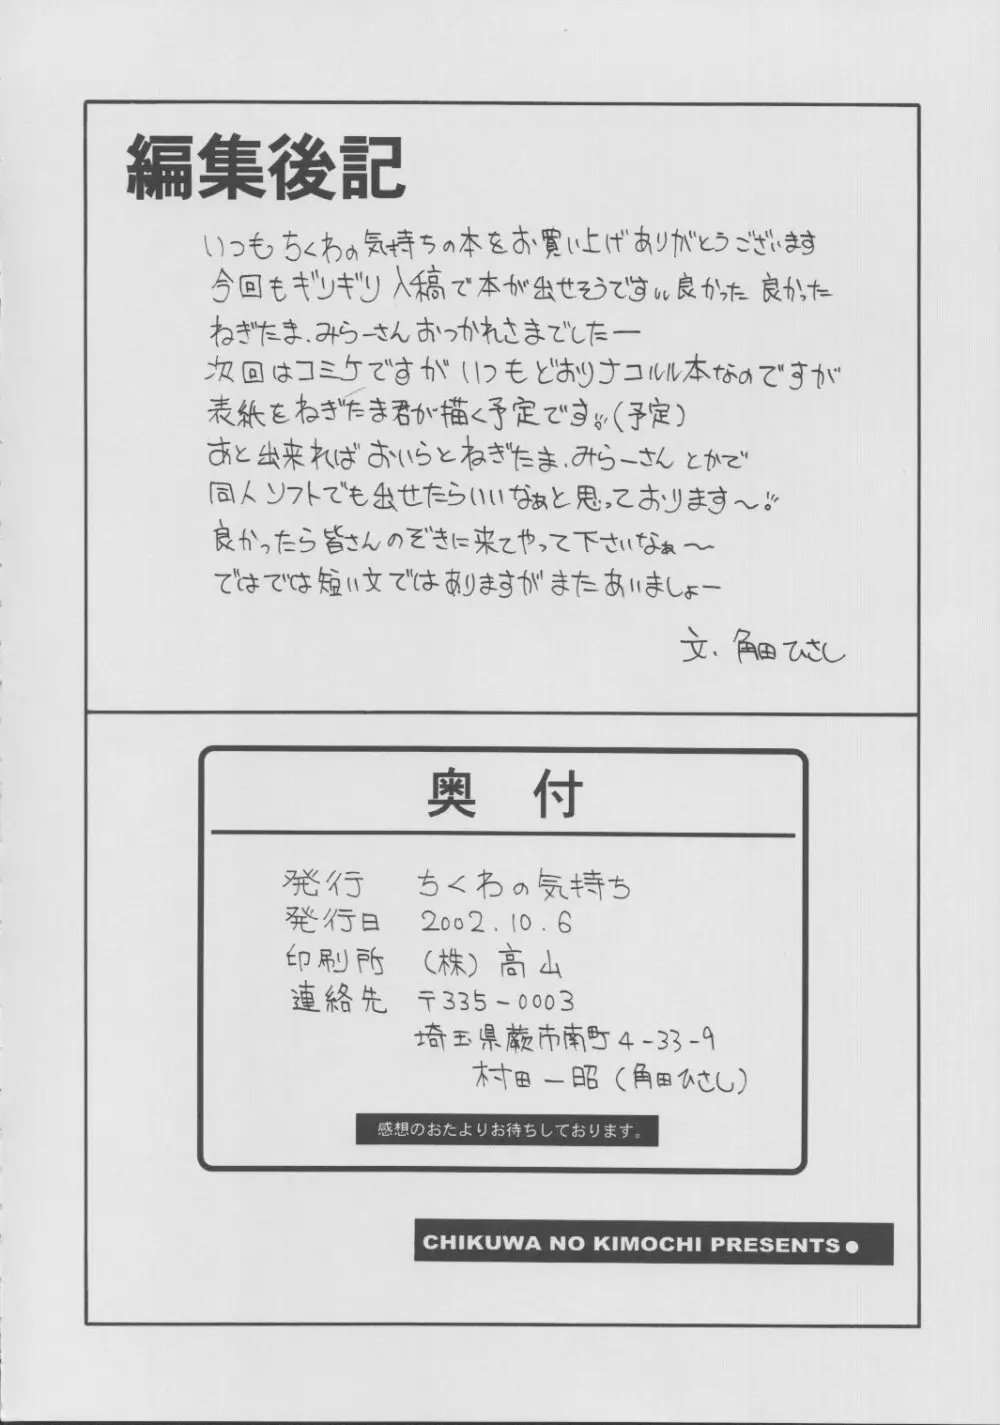 編集後記
いつもちくわの気持ちの本をお買い上げありがとうございます
今回もギリギリ入稿で本が出せそうです!! 良かった 良かった
ねぎたま、みらーさんおつかれさまでしたー
次回はコミケですが いつもどおりナコルル本なのですが
表紙をねぎたま君が描く予定です!! (予定)
あと出来ればおいらとねぎたま、みらーさん とかで
同人ソフトでも出せたらいいなぁと思っております〜!!
良かったら皆さんのぞきに来てやって下さいなぁ〜
ではでは短い文ではありますがまたあいましょー
文、角田ひさし
奥 付
発行 ちくわの気持ち
発行日 2002.10.6
印刷所 (株)高山
連絡先 〒335-0003
埼玉県蕨市南町4-33-9
村田一昭(角田ひさし)
感想のおたよりお待ちしております。
CHIKUWA NO KIMOCHI PRESENTS●